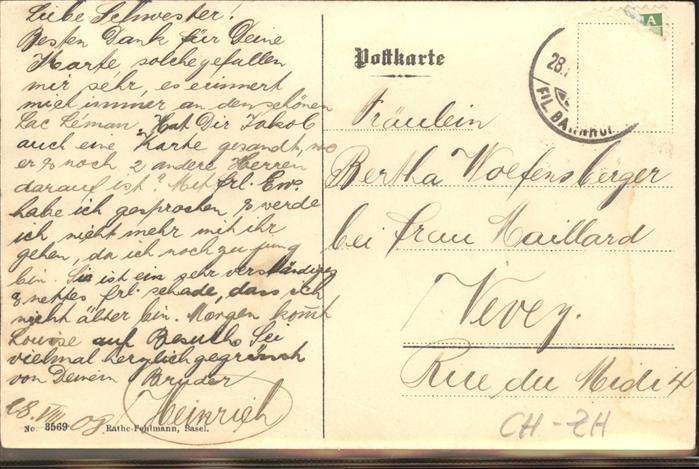 Liebe Schwester!
Besten Dank für Deine
Karte solche gefallen
mir sehr, es erinnert
mich immer an den schönen
Lac Léman. Hat Dir Jakob
auch eine Karte gesandt, wo
er & noch 2 andere Herren
darauf ist? Mit Frl. Ews.
habe ich gesprochen, & werde
ich nicht mehr mit ihr
gehen, da ich noch zu jung
bin. Sie ist ein sehr verständiges
& nettes Frl. schade, dass ich
nicht älter bin. Morgen kom̅t
Louise auf Besuch. Sei
vielmal herzlich gegrüsst
von Deinem Bruder
Heinrich
28. VIII 09.
No. 3569 Rathe-Fehlmann, Basel.
Postkarte
28.
FIL. BAHNHOF
Fräulein
Bertha Wolfensberger
bei Frau Maillard
Vevey.
Rue du Midi 4
CH-ZH